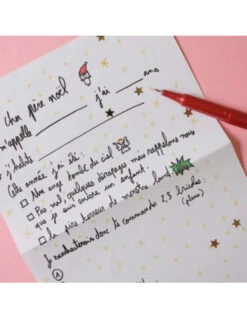 Cher père noël
m'appelle ________ j'ai ____ ans
j'habite ________
Cette année j'ai été :
Un ange tombé du ciel
Pas mal, quelques dérapages mais rappelons nous
que je suis encore un enfant.
la pire terreur de monde
Je souhaiterais donc te commander 2,3 bricoles :
(plus)
1